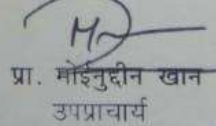 प्रा. मोईनुद्दीन खान
उपप्राचार्य